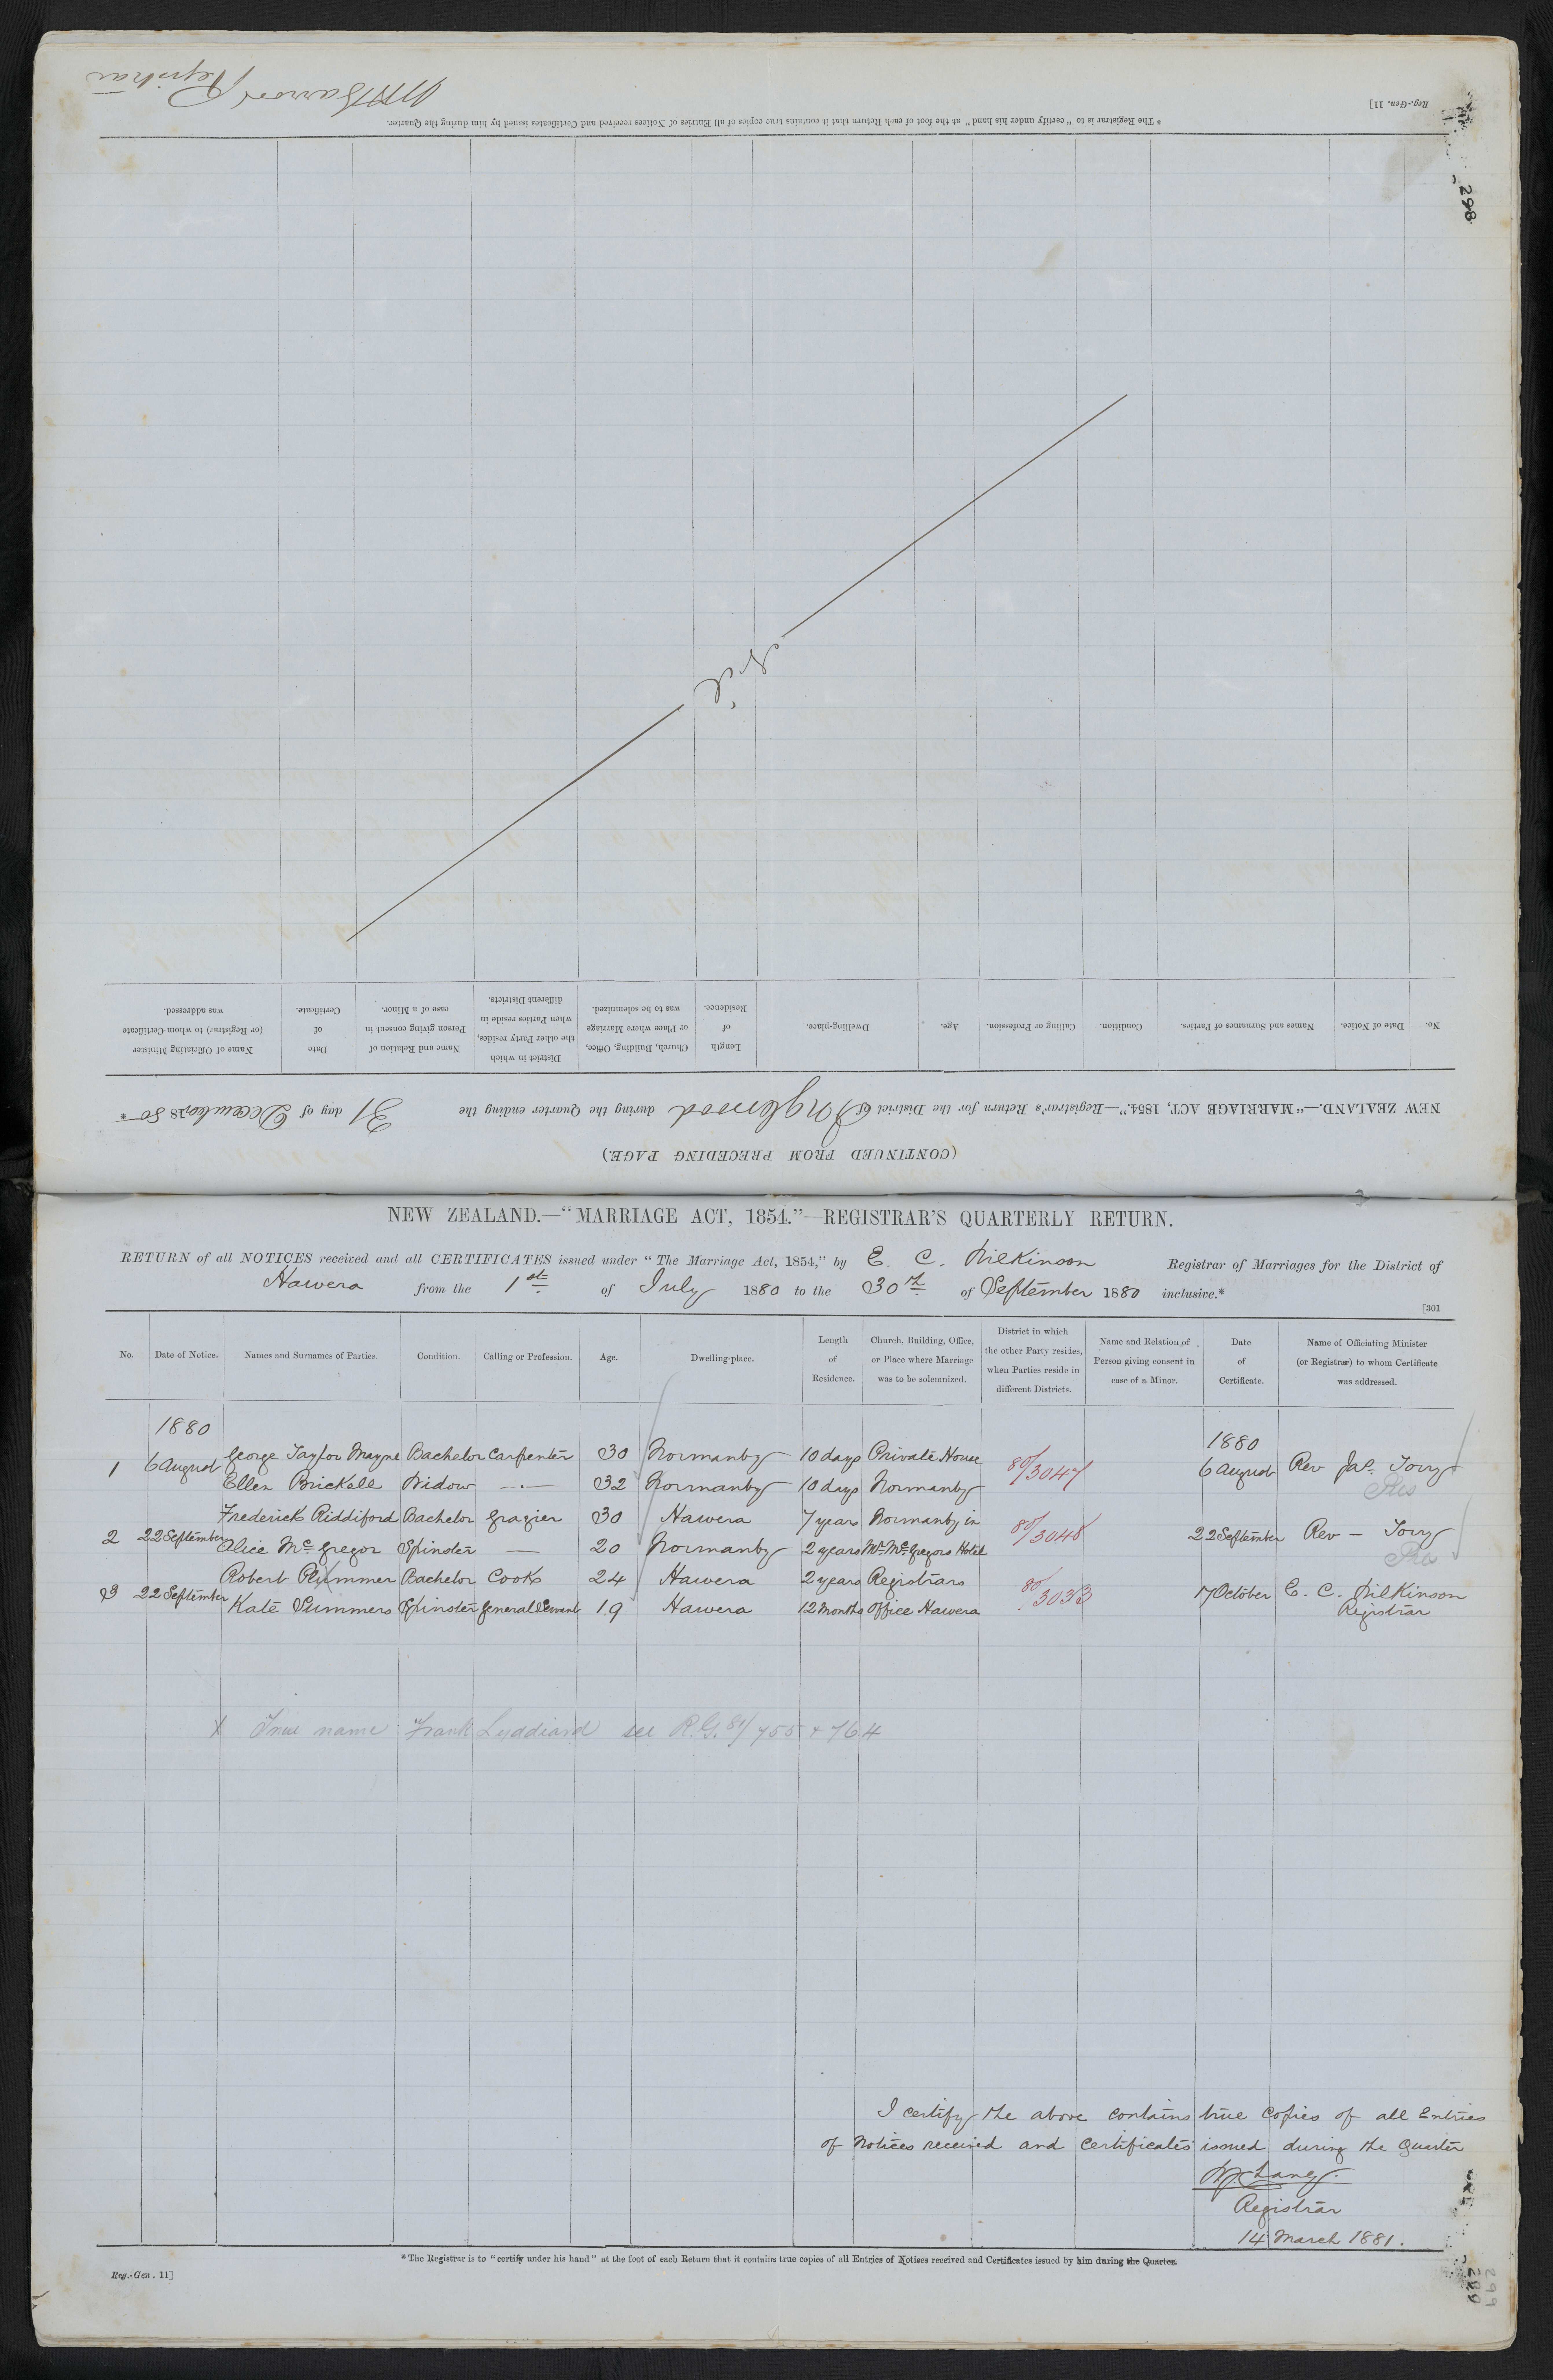 NEW ZEALAND.—"MARRIAGE ACT, 1854."—REGISTRAR'S QUARTERLY RETURN.
RETURN of all NOTICES received and all CERTIFICATES issued under "The Marriage Act, 1854," by E. C. Wilkinson Registrar of Marriages for the District of
Hawera from the 1st of July 1880 to the 30th of September 1880 inclusive.*
[301
No. Date of Notice. Names and Surnames of Parties. Condition. Calling or Profession. Age. Dwelling-place. Length of Residence. Church, Building, Office, or Place where Marriage was to be solemnized. District in which the other Party resides, when Parties reside in different Districts. Name and Relation of Person giving consent in case of a Minor. Date of Certificate. Name of Officiating Minister (or Registrar) to whom Certificate was addressed.
1880 1880
1 6 August George Taylor Mayne Bachelor Carpenter 30 Normanby 10 days Private House 80/3047 6 August Rev Jas. Torry
Ellen Brickell Widow — 32 Normanby 10 days Normanby Pres
2 22 September Frederick Riddiford Bachelor Grazier 30 Hawera 7 years Normanby in 80/3048 22 September Rev — Torry
Alice McGregor Spinster — 20 Normanby 2 years Mr McGregors Hotel Pres
3 22 September Robert Plummer Bachelor Cook 24 Hawera 2 years Registrars 80/3033 7 October E. C. Wilkinson
Kate Summers Spinster General Servant 19 Hawera 12 Months Office Hawera Registrar
X True name Frank Lyddiard see R.G. 81/755 + 764
I certify the above contains true copies of all Entries
of Notices received and certificates issued during the Quarter
Registrar
14 March 1881.
* The Registrar is to "certify under his hand" at the foot of each Return that it contains true copies of all Entries of Notices received and Certificates issued by him during the Quarter.
Reg.-Gen. 11]
299
(CONTINUED FROM PRECEDING PAGE.)
NEW ZEALAND.—"MARRIAGE ACT, 1854."—Registrar's Return for the District of Inglewood during the Quarter ending the 31 day of December 1880*
No. Date of Notice. Names and Surnames of Parties. Condition. Calling or Profession. Age. Dwelling-place. Length of Residence. Church, Building, Office, or Place where Marriage was to be solemnized. District in which the other Party resides, when Parties reside in different Districts. Name and Relation of Person giving consent in case of a Minor. Date of Certificate. Name of Officiating Minister (or Registrar) to whom Certificate was addressed.
* The Registrar is to "certify under his hand" at the foot of each Return that it contains true copies of all Entries of Notices received and Certificates issued by him during the Quarter.
Reg.-Gen. 11]
Registrar
298